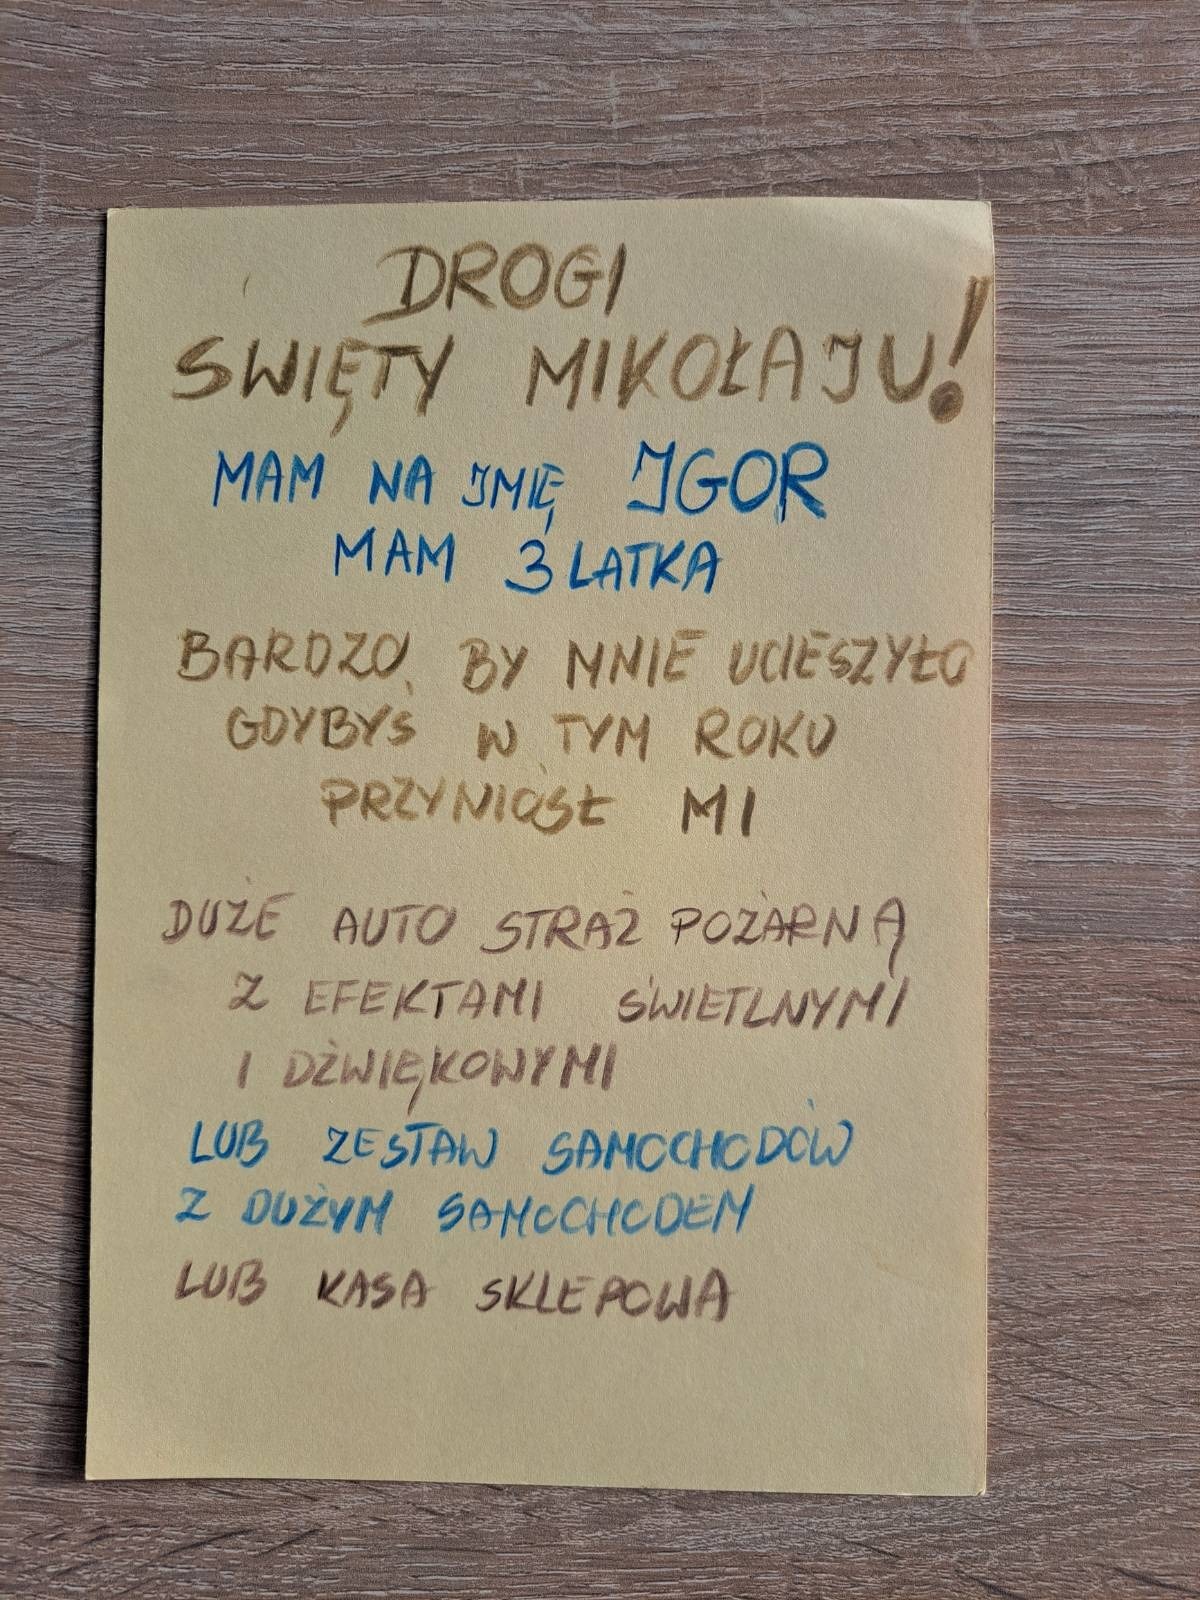 DROGI
SWIĘTY MIKOŁAJU!
MAM NA IMIĘ IGOR
MAM 3 LATKA
BARDZO BY MNIE UCIESZYŁO
GDYBYŚ W TYM ROKU
PRZYNIÓSŁ MI
DUŻE AUTO STRAŻ POŻARNĄ
Z EFEKTAMI ŚWIETLNYMI
I DŹWIĘKOWYMI
LUB ZESTAW SAMOCHODÓW
Z DUŻYM SAMOCHODEM
LUB KASA SKLEPOWA